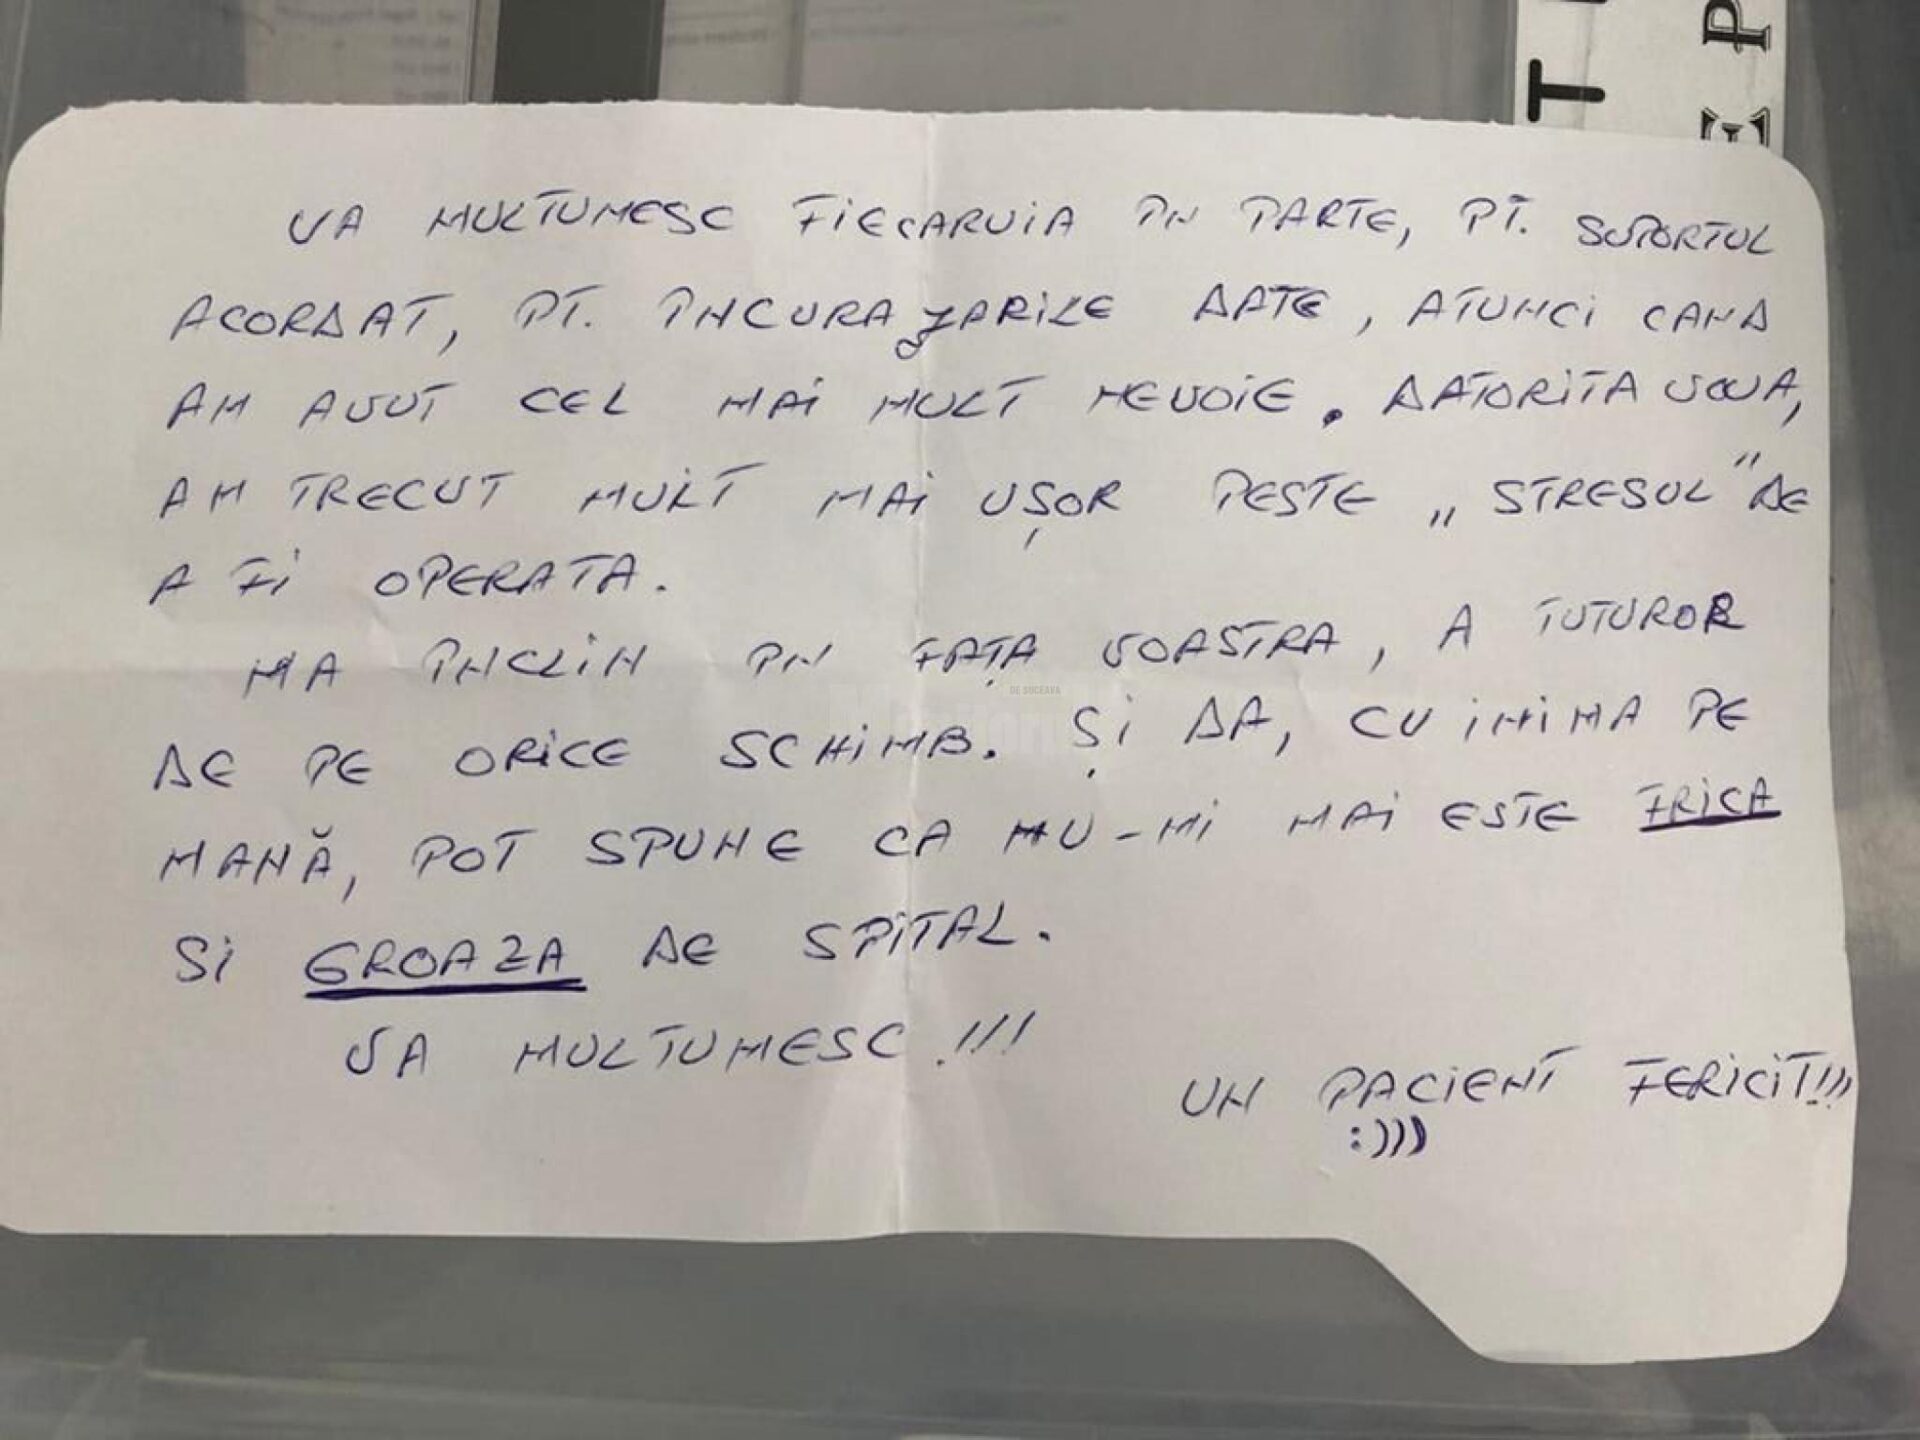 VA MULTUMESC FIECARUIA ÎN PARTE, PT. SUPORTUL
ACORDAT, PT. ÎNCURAJARILE DATE, ATUNCI CAND
AM AVUT CEL MAI MULT NEVOIE. DATORITA VOUA,
AM TRECUT MULT MAI UȘOR PESTE „STRESUL” DE
A FI OPERATA.
MA ÎNCLIN ÎN FAȚA VOASTRA, A TUTUROR
DE PE ORICE SCHIMB. ȘI DA, CU INIMA PE
MANĂ, POT SPUNE CA NU-MI MAI ESTE FRICA
SI GROAZA DE SPITAL.
VA MULTUMESC!!!
UN PACIENT FERICIT!!!
:)))
DE SUCEAVA